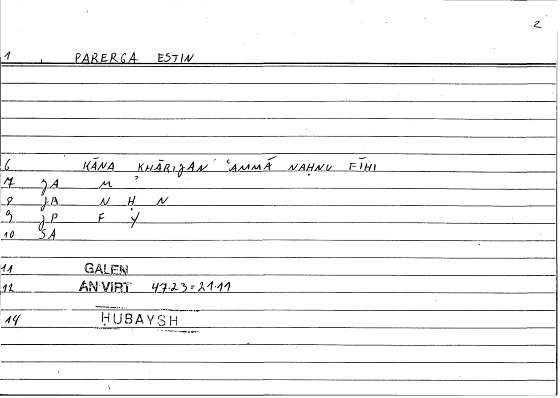 2
1 PARERGA ESTIN
6 KĀNA KHĀRIJAN ʿAMMĀ NAḤNU FĪHI
7 JA M ʾ
8 JA N Ḥ N
9 JP F Y
10 SA
11 GALEN
12 AN VIRT 47.23 = 21.11
14 ḤUBAYSH